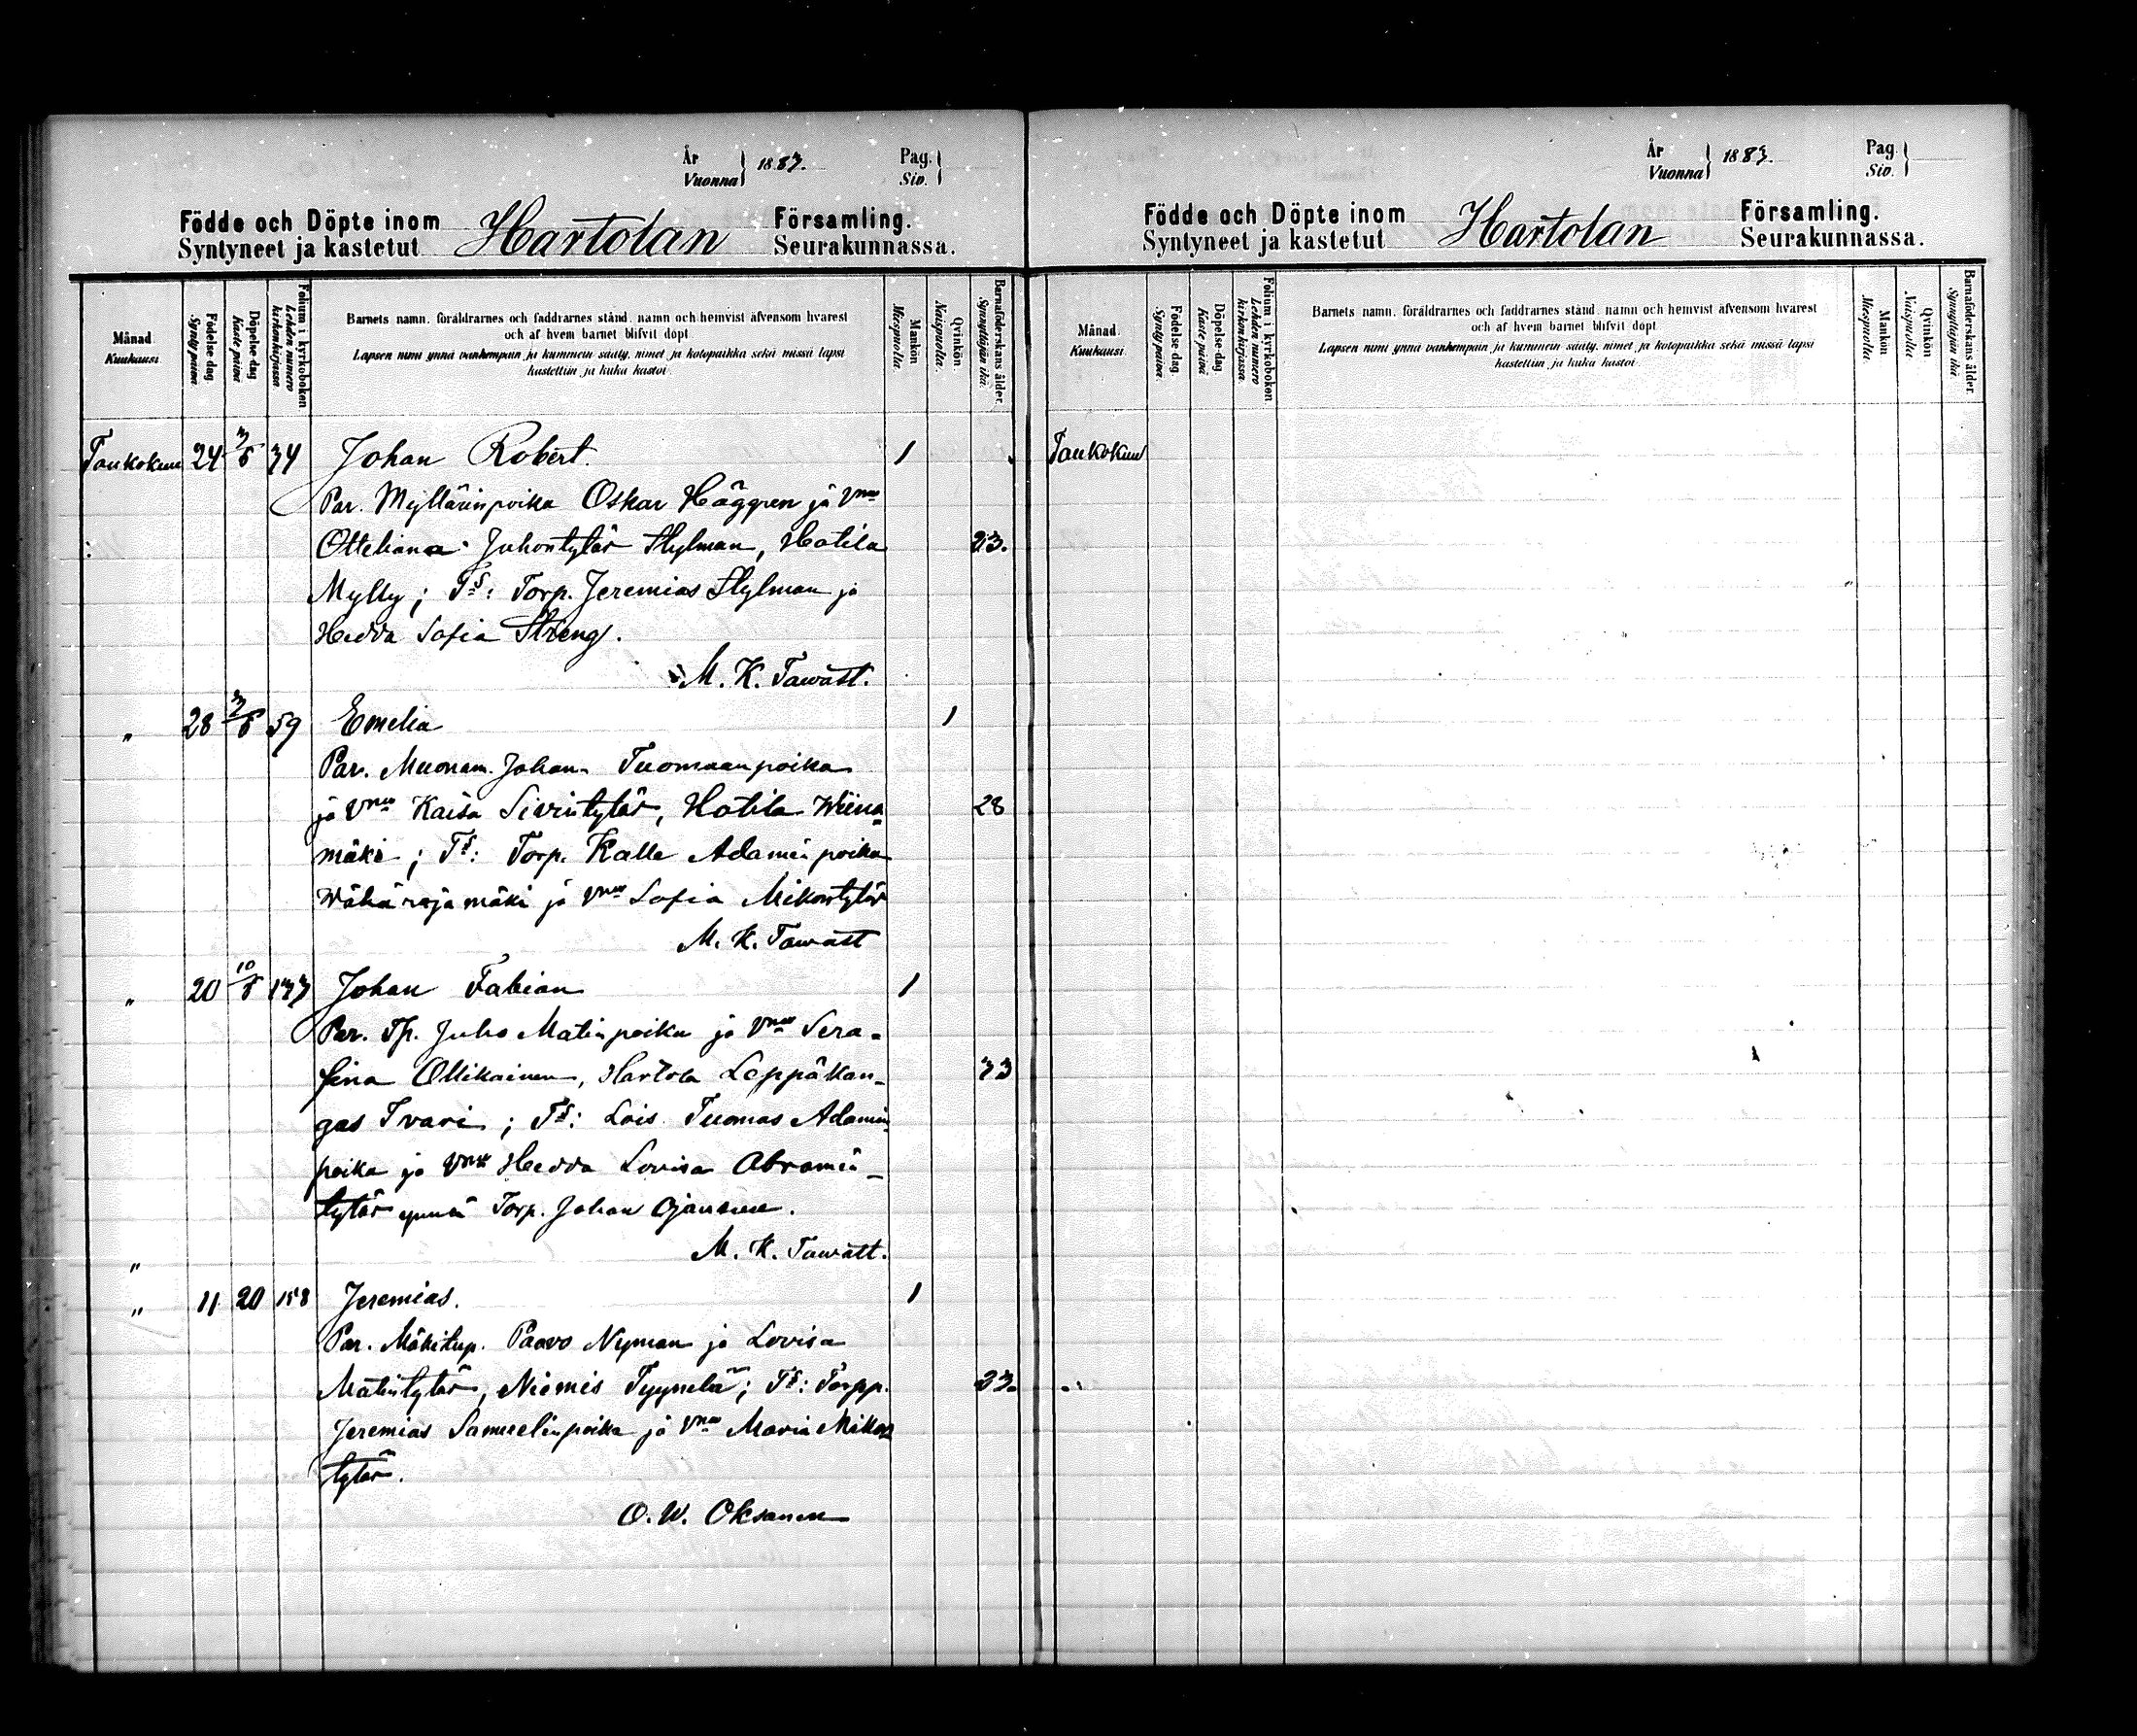 År
Vuonna
1883.
Pag.
Siv.
Födde och Döpte inom
Syntyneet ja kastetut
Hartolan
Församling.
Seurakunnassa.
Månad
Kuukausi
Födelse dag.
Synty päivä
Döpelse dag
Kaste päivä
Folium i kyrkoboken
Lehden numero kirkonkirjassa
Barnets namn, föräldrarnes och faddrarnes stånd, namn och hemvist äfvensom hvarest
och af hvem barnet blifvit döpt
Lapsen nimi ynnä vanhempain ja kummein sääty, nimet ja kotopaikka sekä missä lapsi
kastettiin ja kuka kastoi.
Mankön
Miespuolia.
Qvinkön
Naispuolia.
Barnaföderskans ålder.
Synnyttäjän ikä.
Toukokuu 24 3/6 34 Johan Robert. 1
Par. Myllärinpoika Oskar Häggren ja Vmo
Otteliana Juhontytär Stylman, Hotila 23.
Mylly; Ts: Torp. Jeremias Stylman ja
Hedda Sofia Streng.
M. K. Tawast.
" 28 3/6 59 Emelia 1
Par. Muonam. Johan Tuomaanpoika
ja Vmo Kaisa Sivrintytär, Hotila Wiina- 28
mäki; Ts: Torp. Kalle Adamin poika
Wähärajamäki ja Vmo Sofia Mikontytär
M. K. Tawast
" 20 10/6 133 Johan Fabian 1
Par. Tp. Juho Matinpoika ja Vmo Sera-
fina Ollikainen, Hartola Leppäkan- 33
gas Ivari; Ts: Lois Tuomas Adamin
poika ja Vmo Hedda Lovisa Abramin-
tytär ynnä Torp. Johan Ojanen.
M. K. Tawast.
"
" 11 20 158 Jeremias. 1
Par. Mäkitup. Paavo Nyman ja Lovisa
Matintytär, Niemis Tyynelä; Ts: Torpp. 23.
Jeremias Samuelinpoika ja Vmo Maria Mikon
tytär.
O. W. Oksanen
År
Vuonna
1883.
Pag.
Siv.
Födde och Döpte inom
Syntyneet ja kastetut
Hartolan
Församling.
Seurakunnassa.
Månad
Kuukausi
Födelse dag.
Synty päivä.
Döpelse dag.
Kaste päivä
Folium i kyrkoboken
Lehden numero kirkonkirjassa.
Barnets namn, föräldrarnes och faddrarnes stånd, namn och hemvist äfvensom hvarest
och af hvem barnet blifvit döpt
Lapsen nimi ynnä vanhempain ja kummein sääty, nimet ja kotopaikka sekä missä lapsi
kastettiin ja kuka kastoi.
Mankön
Miespuolia.
Qvinkön
Naispuolia.
Barnaföderskans ålder.
Synnyttäjän ikä
Toukokuu